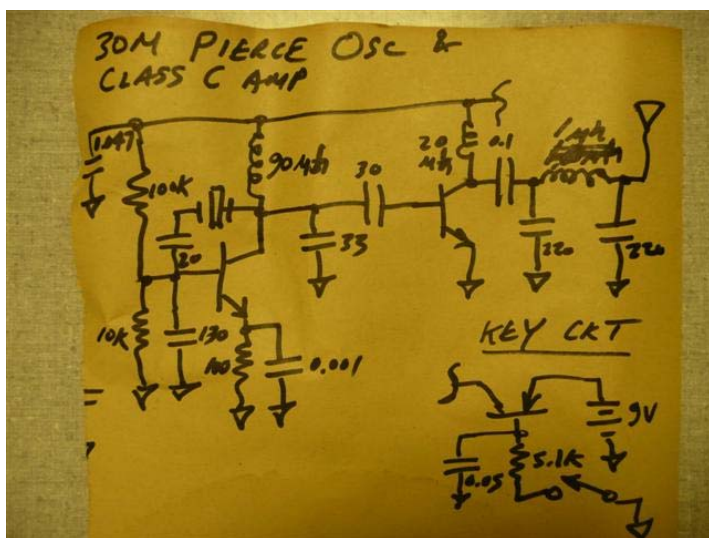 30M PIERCE OSC &
CLASS C AMP
.047
100K
90 µh
30
20
µh
0.1
1 µh
20
33
220
220
10K
130
100
0.001
KEY CKT
9V
5.1K
0.05